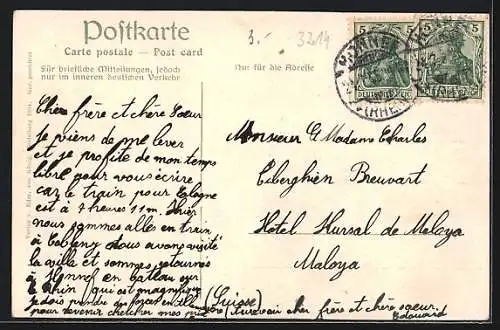 Postkarte
Carte postale — Post card
Für briefliche Mitteilungen, jedoch
nur im inneren deutschen Verkehr
Nur für die Adresse
3.- 3214
5 5 5 5
HONNEF
(RHEIN)
Chère frère et chère Soeur
je viens de me lever
et je profite de mon temps
libre pour vous écrire
car le train pour Cologne
est à 7 heures 11m. Hier
nous sommes allés en train
à Coblenz nous avons visité
la ville et sommes retournés
à Honnef en bateau sur
le Rhin (qui est magnifique
je dois prendre des forces en
pour revenir chercher mes
Monsieur & Madame Charles
Breuvart
Hôtel Kursal de Maloya
Maloya
(Suisse)
Aurevoir cher frère et chère soeur.
Edouard